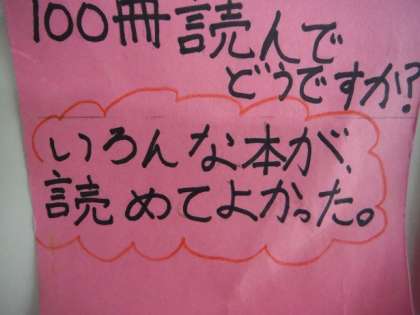 100冊読んで
どうですか?
いろんな本が、
読めてよかった。